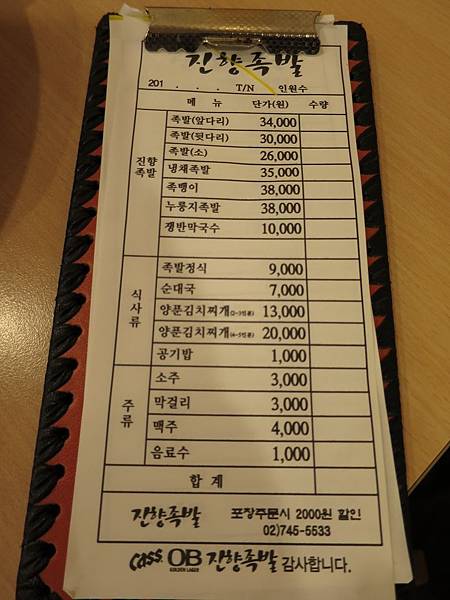 진향족발
201 . . . T/N 인원수
메 뉴 단가(원) 수량
진향족발
족발(앞다리) 34,000
족발(뒷다리) 30,000
족발(소) 26,000
냉채족발 35,000
족뱅이 38,000
누룽지족발 38,000
쟁반막국수 10,000
식사류
족발정식 9,000
순대국 7,000
양푼김치찌개(2~3인분) 13,000
양푼김치찌개(4~5인분) 20,000
공기밥 1,000
주류
소주 3,000
막걸리 3,000
맥주 4,000
음료수 1,000
합 계
진향족발 포장주문시 2000원 할인
02)745-5533
Cass OB GOLDEN LAGER 진향족발 감사합니다.